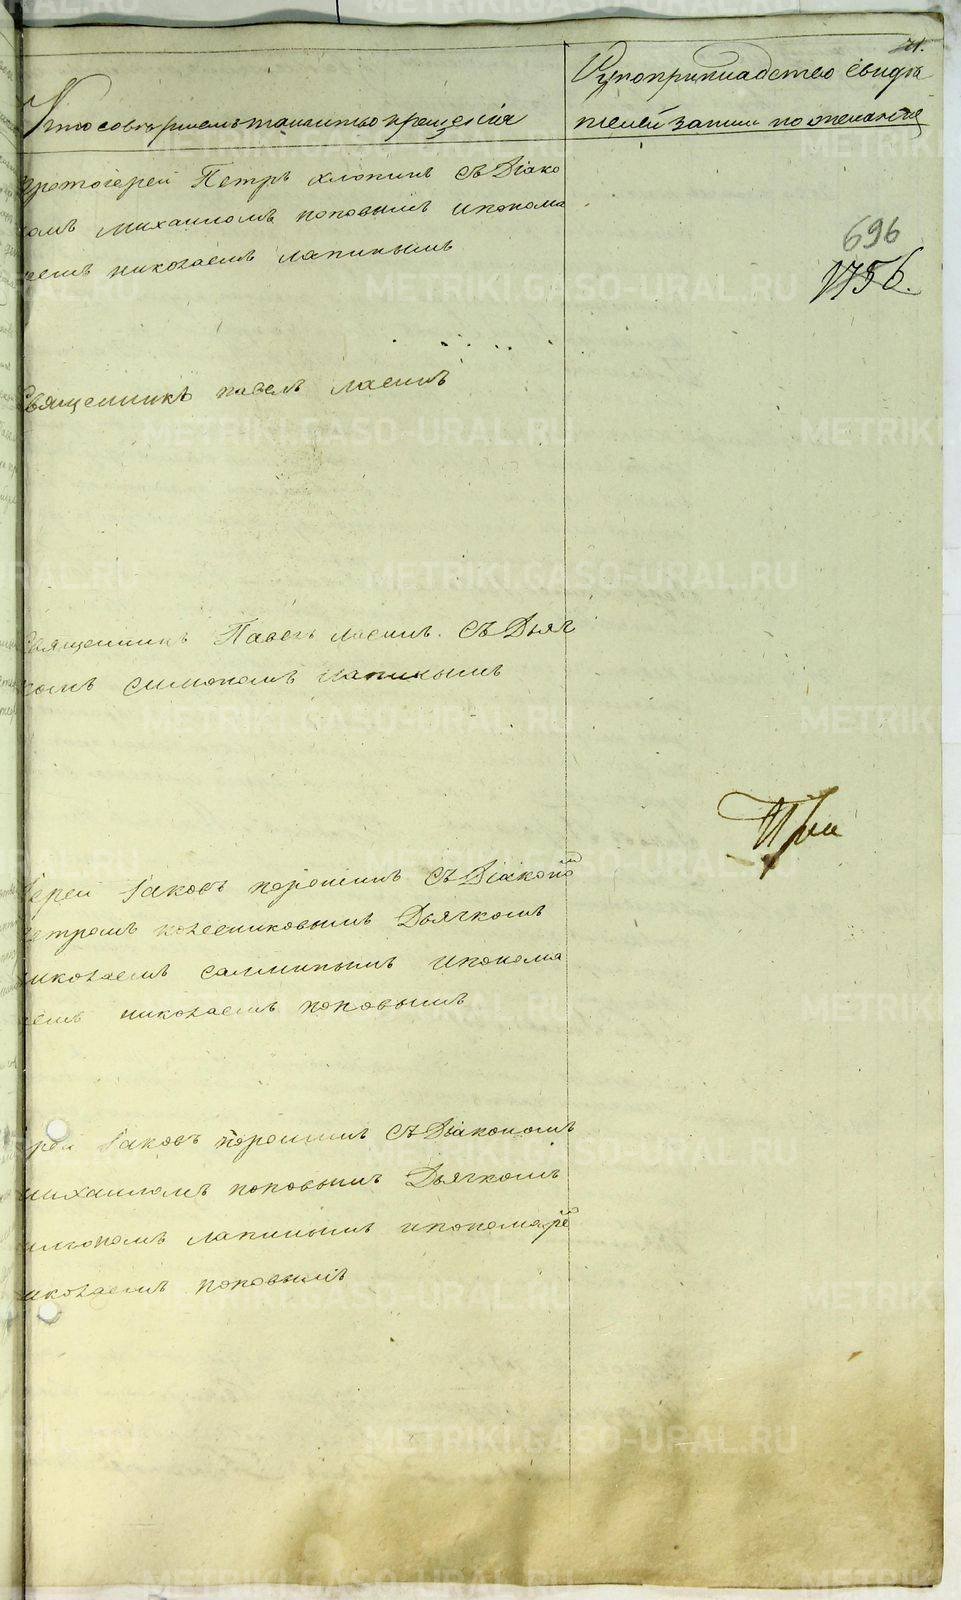 71.
Кто совершалъ таинство крещенія
Рукоприкладство свидѣ
телей записи по желанію
протоіерей Петръ Хлопинъ съ Діако
омъ Михаиломъ поповымъ и понома
емъ николаемъ лапинымъ
696
1756.
Священникъ павелъ
Священникъ Павелъ съ Дьяч
комъ Симономъ лапинымъ
При
Іерей Іаковъ порошинъ съ Діакономъ
етромъ колесниковымъ Дьячкомъ
николаемъ и понома
емъ николаемъ поповымъ
рей Іаковъ порошинъ съ Діакономъ
михаиломъ поповымъ Дьячкомъ
имономъ лапинымъ и пономаремъ
николаемъ поповымъ
METRIKI.GASO-URAL.RU